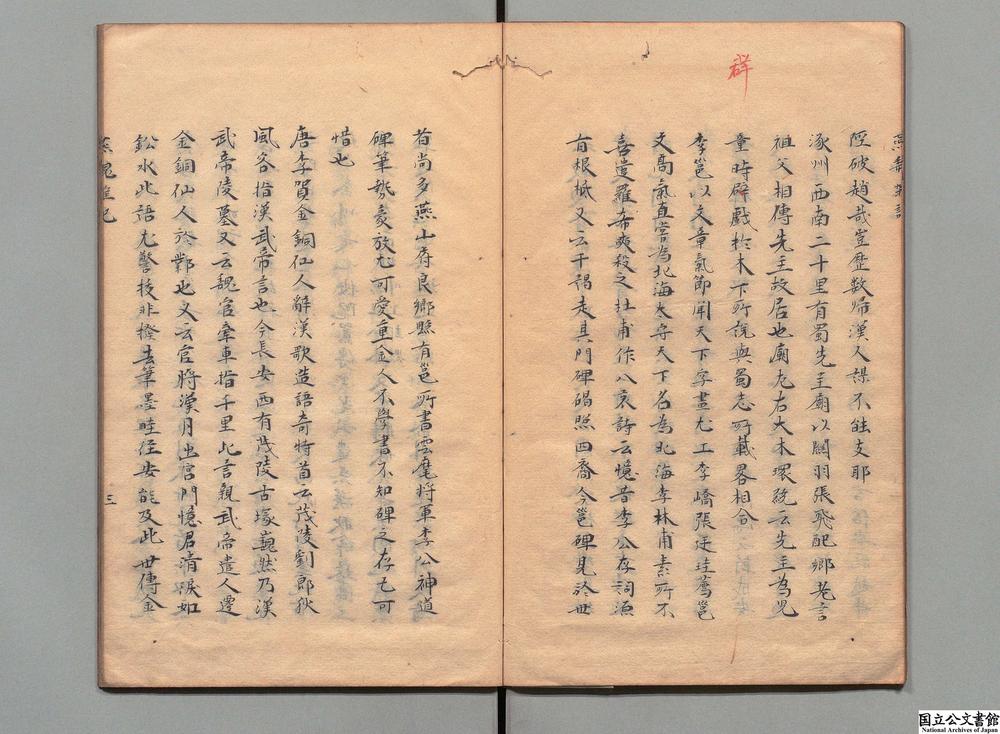 群
陘破趙哉豈歷數歸漢人謀不能支耶
涿州西南二十里有蜀先主廟以關羽張飛配鄉老言
祖父相傳先主故居也廟左右大木環繞云先主為兒
童時群戲於木下所說與蜀志所載畧相合
李邕以文章氣節聞天下字畫尤工李嶠張廷珪薦邕
文高氣直嘗為北海太守天下名為北海李林甫素所不
喜遣羅希奭殺之杜甫作八哀詩云憶昔李公存詞源
有根柢又云干謁走其門碑碣照四裔今邕碑見於世
者尚多燕山府良鄉縣有邕所書雲麾將軍李公神道
碑筆勢豪放尤可愛重金人不學書不知碑之存亡可
惜也
唐李賀金銅仙人辭漢歌造語奇特首云茂陵劉郎秋
風客指漢武帝言也今長安西有茂陵古塚巍然乃漢
武帝陵墓又云魏官牽車指千里此言魏武帝遣人遷
金銅仙人於鄴也又云官將漢月出宮門憶君清淚如
鉛水此語尤警拔非撥去筆墨畦徑安能及此世傳金
三
国立公文書館
National Archives of Japan